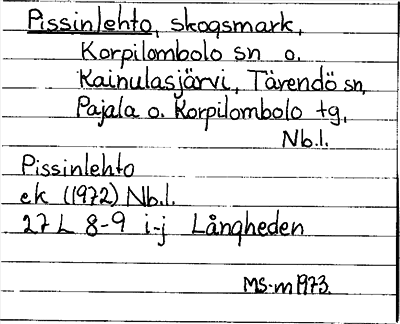 Pissinlehto, skogsmark,
Korpilombolo sn o.
Kainulasjärvi, Tärendö sn,
Pajala o. Korpilombolo tg,
Nb.l.
Pissinlehto
ek (1972) Nb.l.
27 L 8-9 i-j Långheden
MS-m 1973.